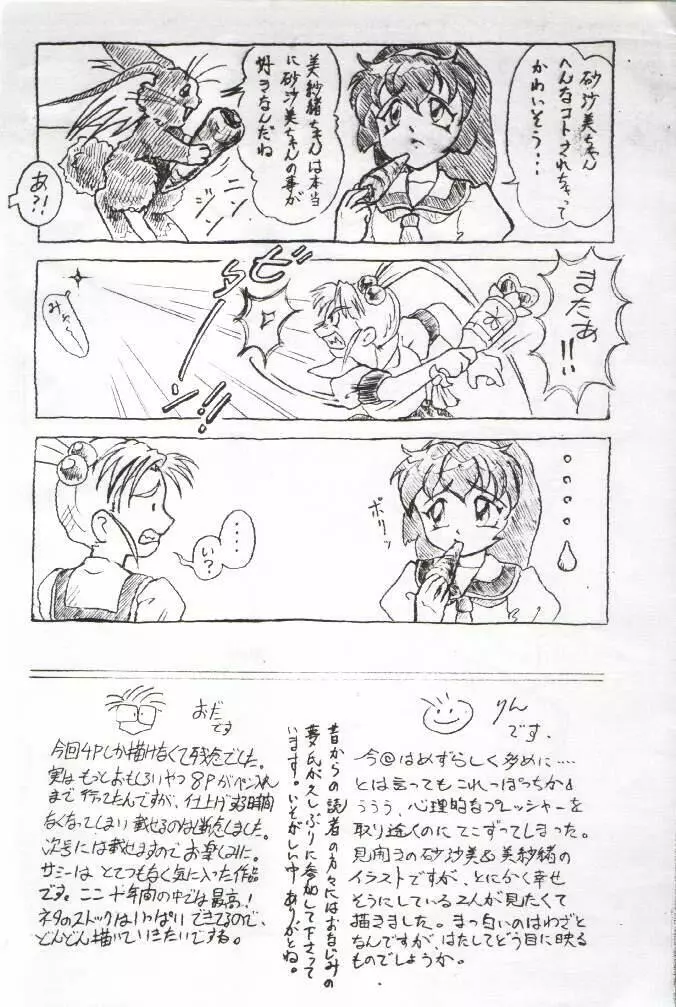 砂沙美ちゃん
へんなコトされちゃって
かわいそう・・・
美紗緒ちゃんは本当
に砂沙美ちゃんの事が
好きなんだね
ニン
ジン
あ?!
またぁ!!
みゃ〜
・・・・
い?
ポリッ
りん
です.
今回はめずらしく多めに……
とは言ってもこれっぽっちかよ
ううう、心理的なプレッシャーを
取り除くのにてこずってしまった。
見開きの砂沙美&美紗緒の
イラストですが、とにかく幸せ
そうにしている2人が見たくて
描きました。まっ白いのはわざと
なんですが、はたしてどう目に映る
ものでしょうか。
昔からの読者の方々にはお馴じみの
夢氏がえしぶりに参加して下さって
います!いそがしい中、ありがとね。
おだ
です
今回4Pしか描けなくて残念でした。
実はもっとおもしろいやつ8Pがペン入れ
まで行ってたんですが、仕上げする時間
なくなってしまい載せるのは断念しました。
次号には載せますのでお楽しみに。
サミーはとてつもなく気に入った作品
です。ここ十年間の中では最高!
ネタのストックはいっぱいできてるので、
どんどん描いていきたいですね。